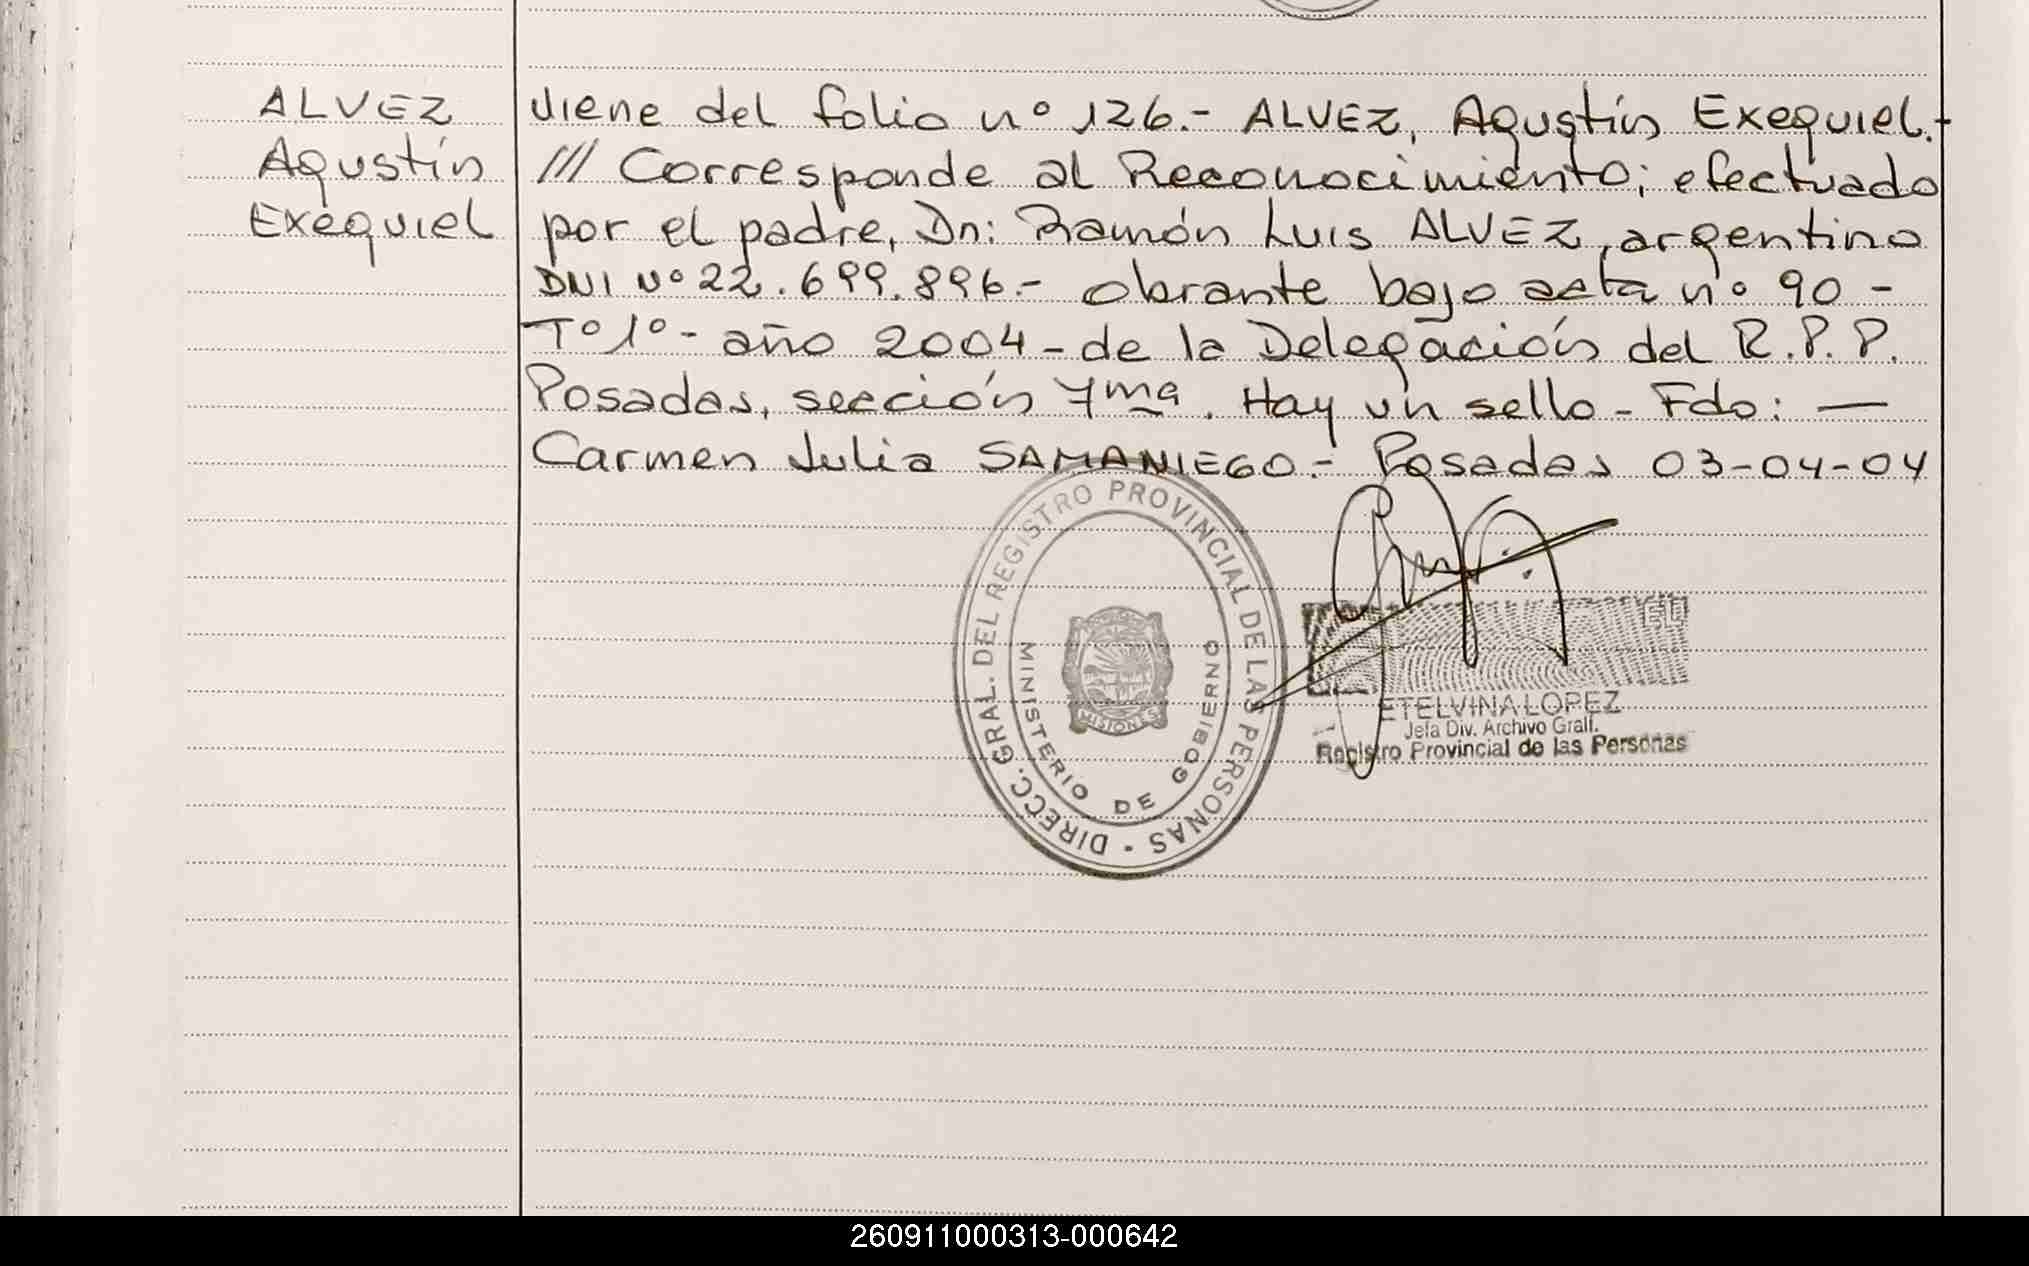 ALVEZ
Agustín
Exequiel
viene del folio nº 126.- ALVEZ, Agustín Exequiel.-
/// Corresponde al Reconocimiento; efectuado
por el padre, Dn: Ramón Luis ALVEZ, argentino
DNI Nº 22.699.896.- obrante bajo acta nº 90 -
Tº 1º - año 2004 - de la Delegación del R.P.P.
Posadas, sección 7ma. Hay un sello - Fdo: —
Carmen Julia SAMANIEGO.- Posadas 03-04-04
DIRECC. GRAL. DEL REGISTRO PROVINCIAL DE LAS PERSONAS -
MINISTERIO DE GOBIERNO
MISIONES
ETELVINA LOPEZ
Jefa Div. Archivo Grall.
Registro Provincial de las Personas
260911000313-000642